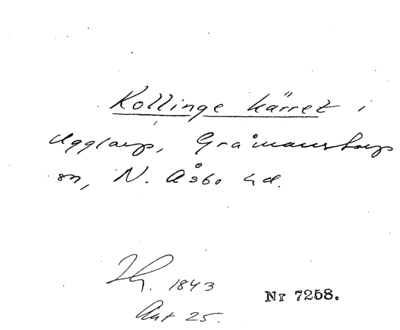 Kollinge kärret i
Ugglarp, Gråmanstorps
sn, N. Åsbo hd.
1843
Akt 25.
Nr 7258.